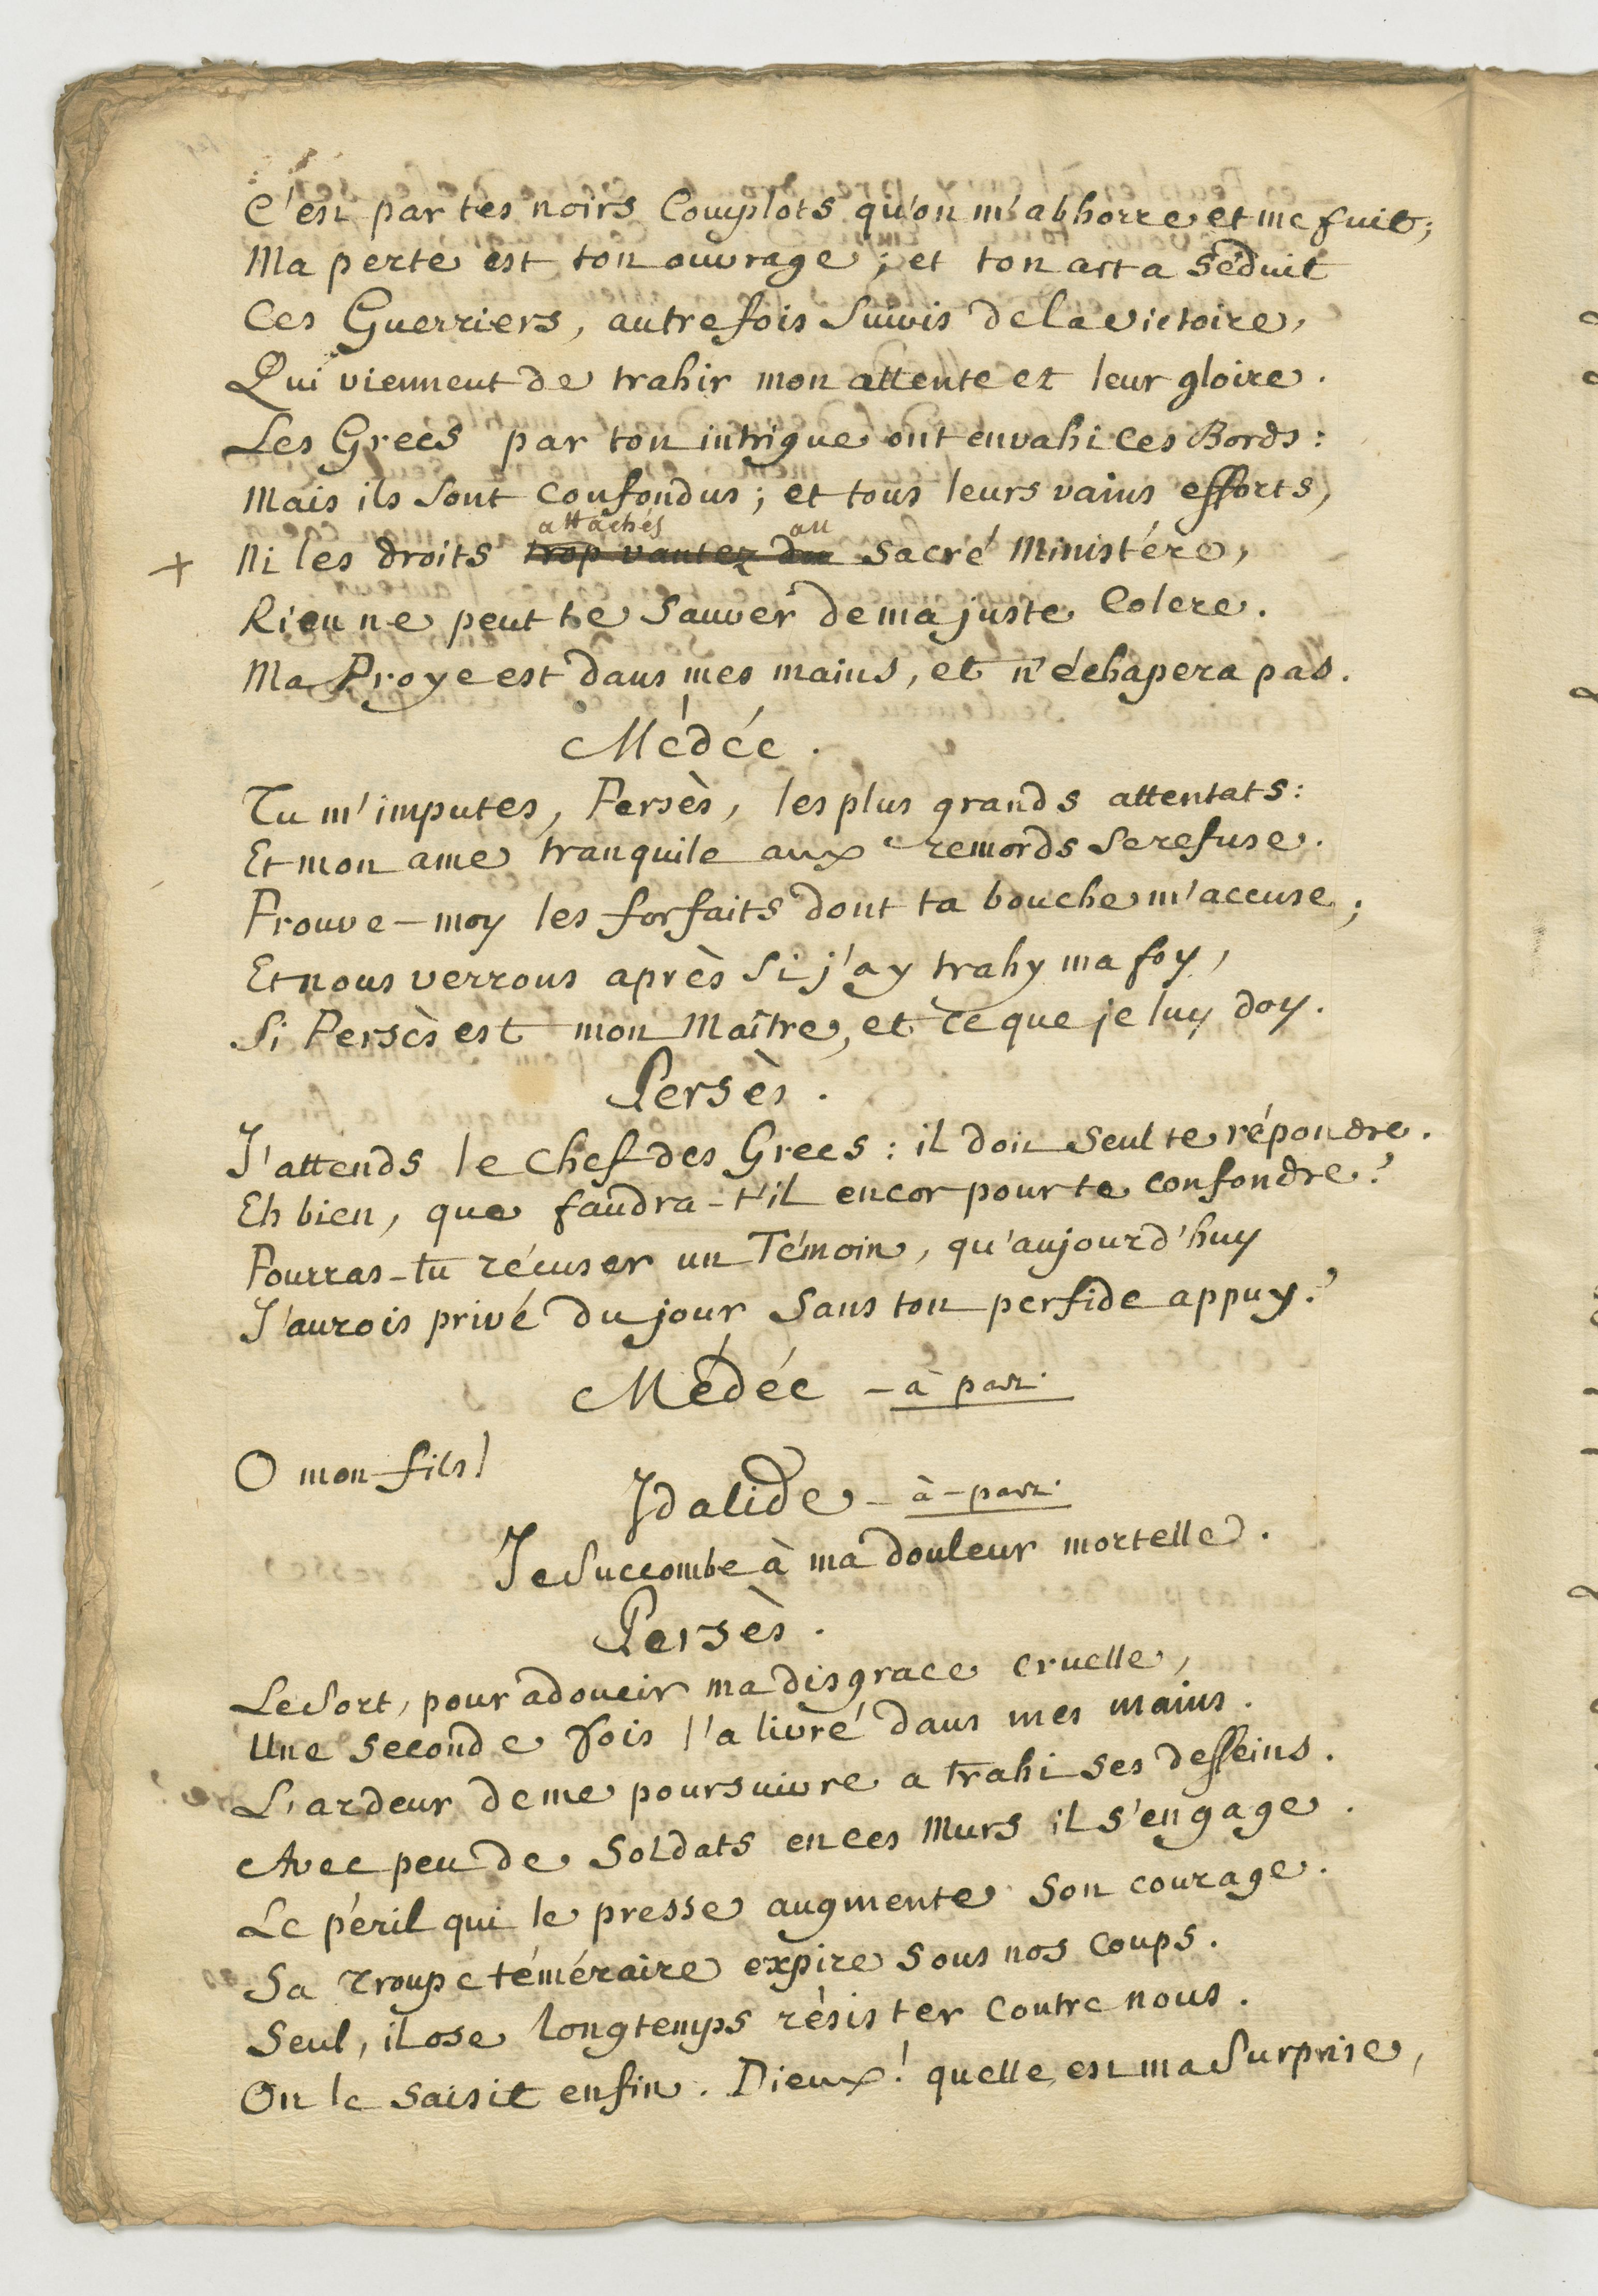 C'est par tes noirs Complots qu'on m'abhorre et me fuit;
Ma perte est ton ouvrage; et ton art a séduit
Ces Guerriers, autrefois Suivis de la victoire,
Qui viennent de trahir mon attente et leur gloire.
Les Grecs par ton intrigue ont envahi ces Bords:
Mais ils Sont confondus; et tous leurs vains efforts,
attachés au
+ Ni les droits trop vantez du Sacré Ministére,
Rien ne peut te Sauver de ma juste Colere.
Ma Proye est dans mes mains, et n'échapera pas.
Médée.
Tu m'imputes, Persès, les plus grands attentats:
Et mon ame tranquile aux remords Se refuse.
Prouve-moy les forfaits dont ta bouche m'accuse;
Et nous verrons après Si j'ay trahy ma foy,
Si Persès est mon Maître, et ce que je luy doy.
Persès.
J'attends le Chef des Grecs: il doit Seul te répondre.
Eh bien, que faudra-t'il encor pour te confondre?
Pourras-tu récuser un Témoin, qu'aujourd'huy
J'aurois privé du jour Sans ton perfide appuy?
Médée - à part.
O mon fils!
Idalide - à-part.
Je Succombe à ma douleur mortelle.
Persès.
Le Sort, pour adoucir ma disgrace cruelle,
Une Seconde fois l'a livré dans mes mains.
L'ardeur de me poursuivre a trahi ses desseins.
Avec peu de Soldats en ces Murs il s'engage.
Le péril qui le presse augmente Son courage.
Sa Troupe téméraire expire Sous nos Coups.
Seul, il ose longtemps résister Contre nous.
On le Saisit enfin. Dieux! quelle est ma Surprise,